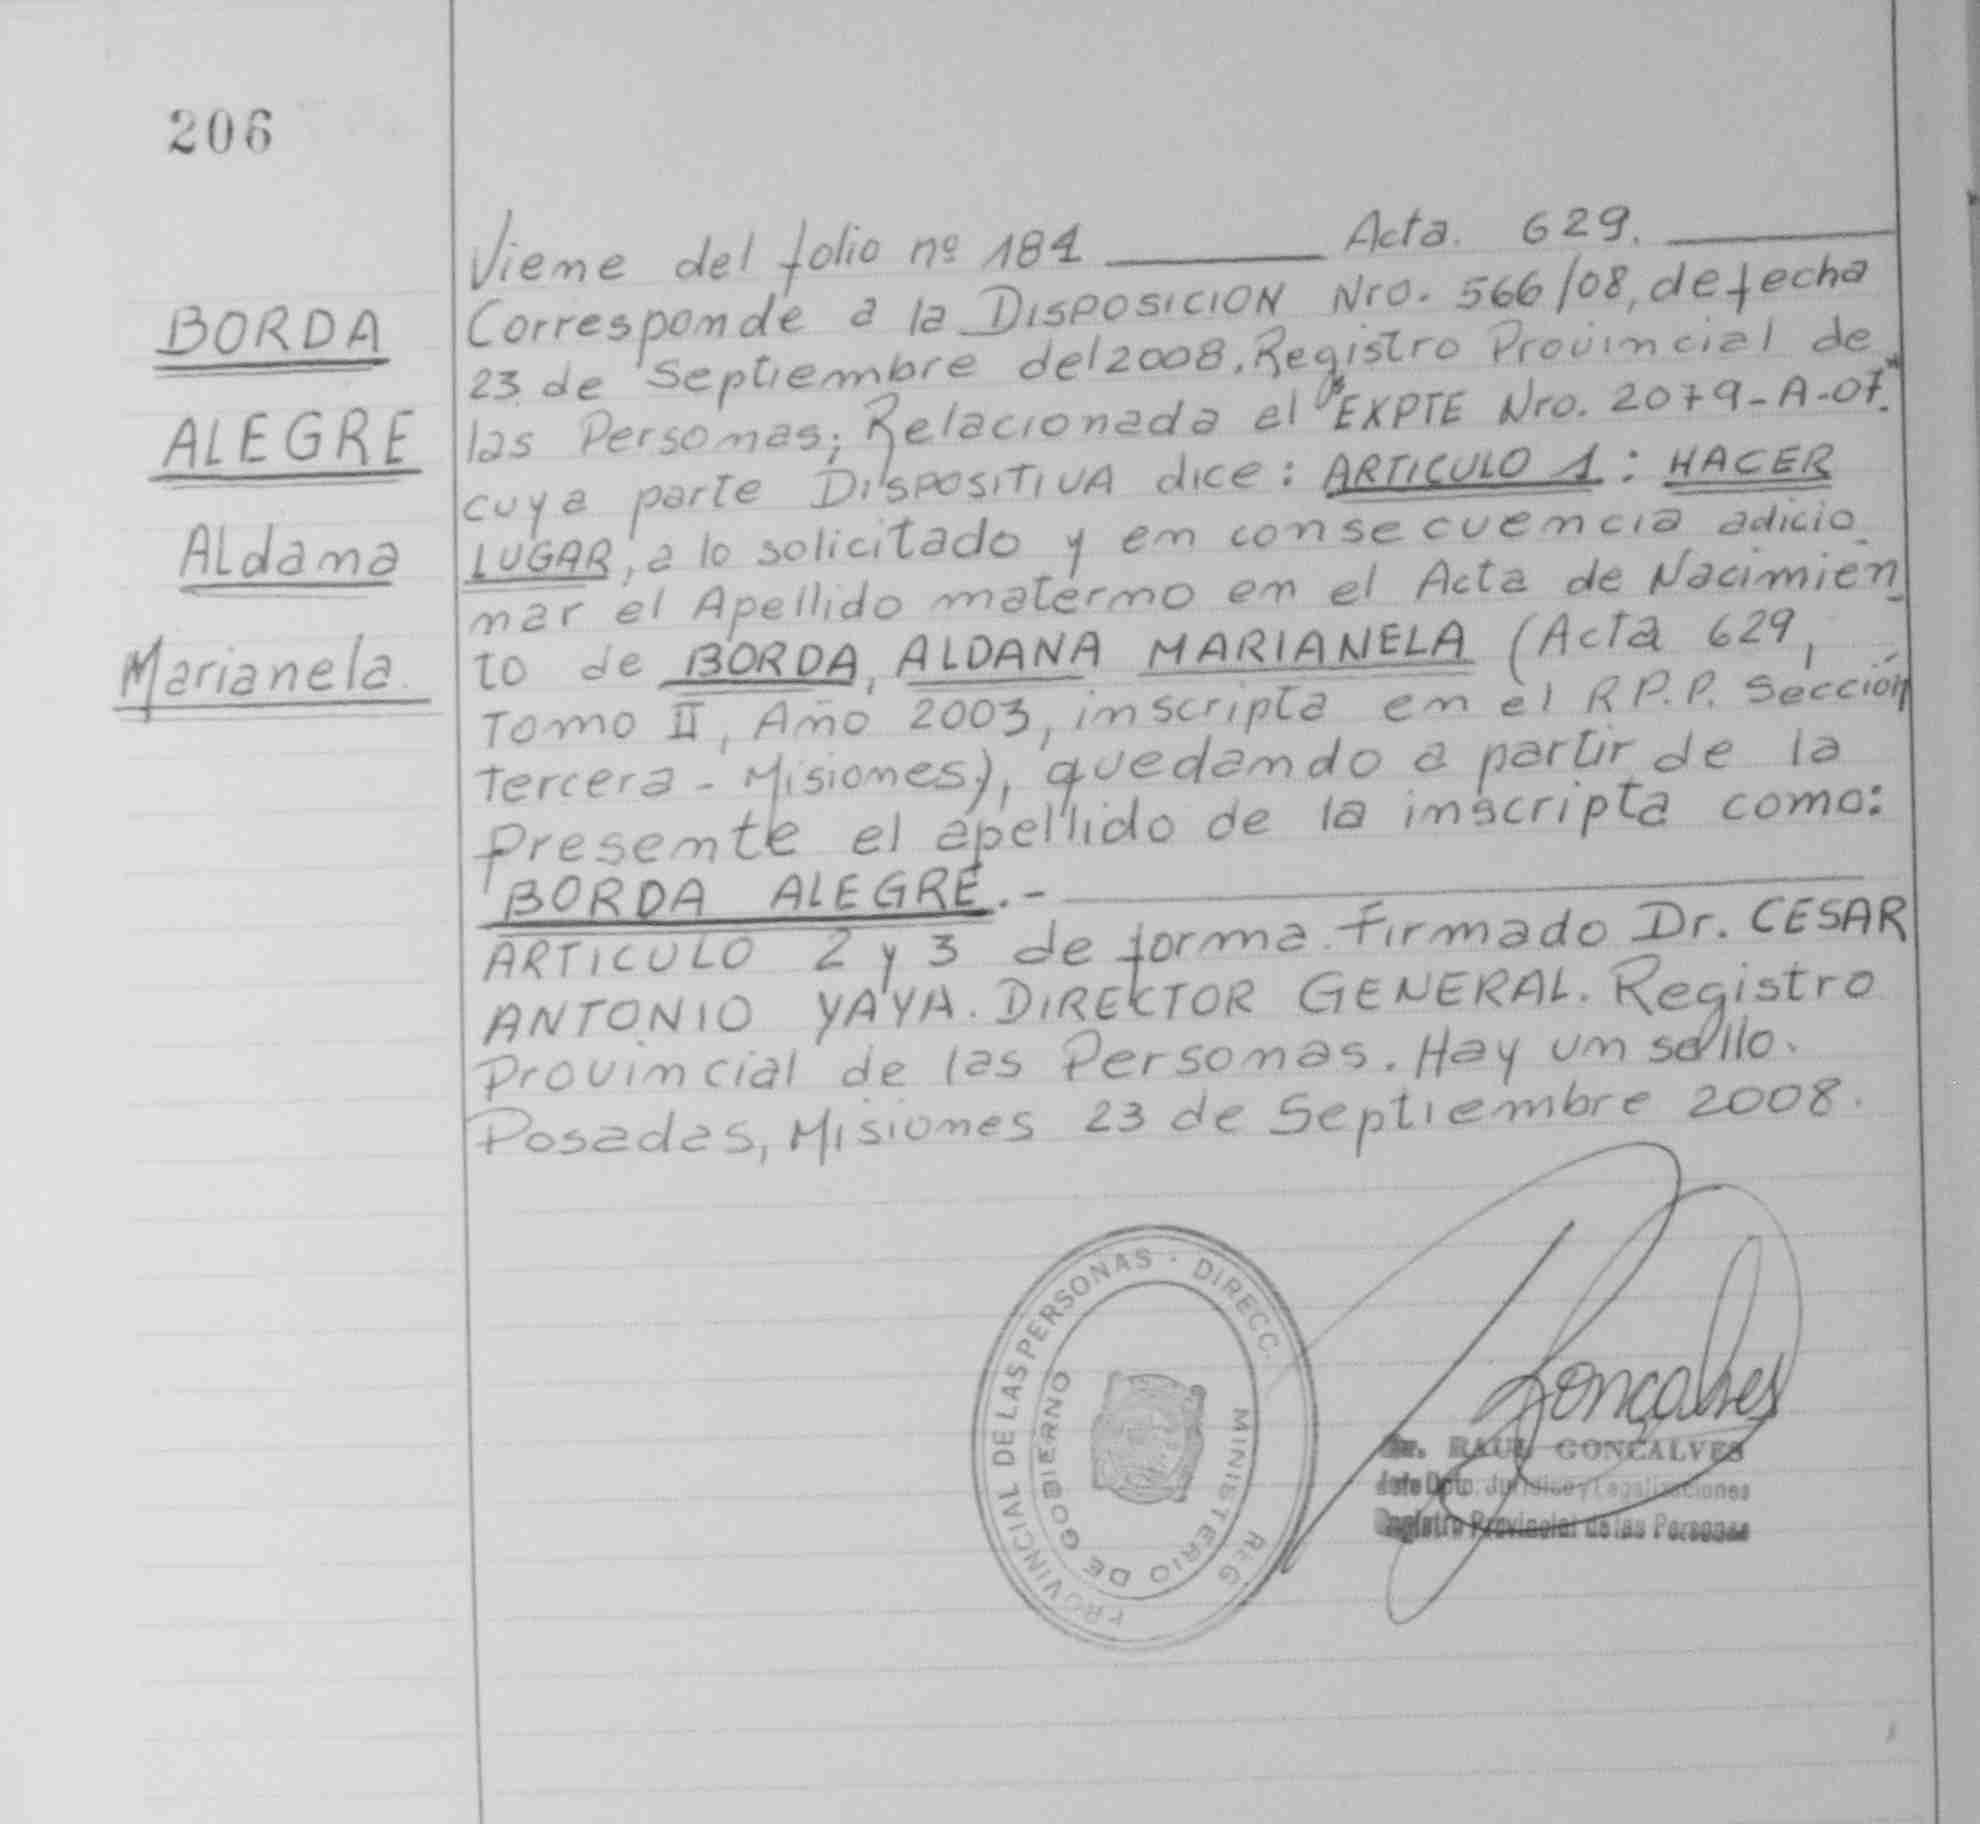 206
BORDA
ALEGRE
Aldana
Marianela.
Viene del folio nº 181 Acta. 629.
Corresponde a la DISPOSICION Nro. 566/08, de fecha
23 de Septiembre del 2008. Registro Provincial de
las Personas; Relacionada el "EXPTE Nro. 2079-A-07"
cuya parte DISPOSITIVA dice: ARTICULO 1: HACER
LUGAR, a lo solicitado y en consecuencia adicio-
nar el Apellido materno en el Acta de Nacimien-
to de BORDA, ALDANA MARIANELA (Acta 629,
Tomo II, Año 2003, inscripta en el R.P.P. Sección
Tercera - Misiones), quedando a partir de la
presente el apellido de la inscripta como:
BORDA ALEGRE.-
ARTICULO 2 y 3 de forma. Firmado Dr. CESAR
ANTONIO YAYA. DIRECTOR GENERAL. Registro
Provincial de las Personas. Hay un sello.
Posadas, Misiones 23 de Septiembre 2008.
DIRECC. REG PROVINCIAL DE LAS PERSONAS
MINISTERIO DE GOBIERNO
Gonçalves
Dr. RAUL GONÇALVES
Jefe Dpto. Jurídico y Legalizaciones
Registro Provincial de las Personas